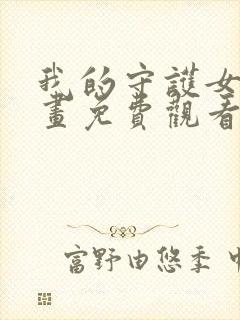 我的守護女
畫免費觀看
富野由悠季